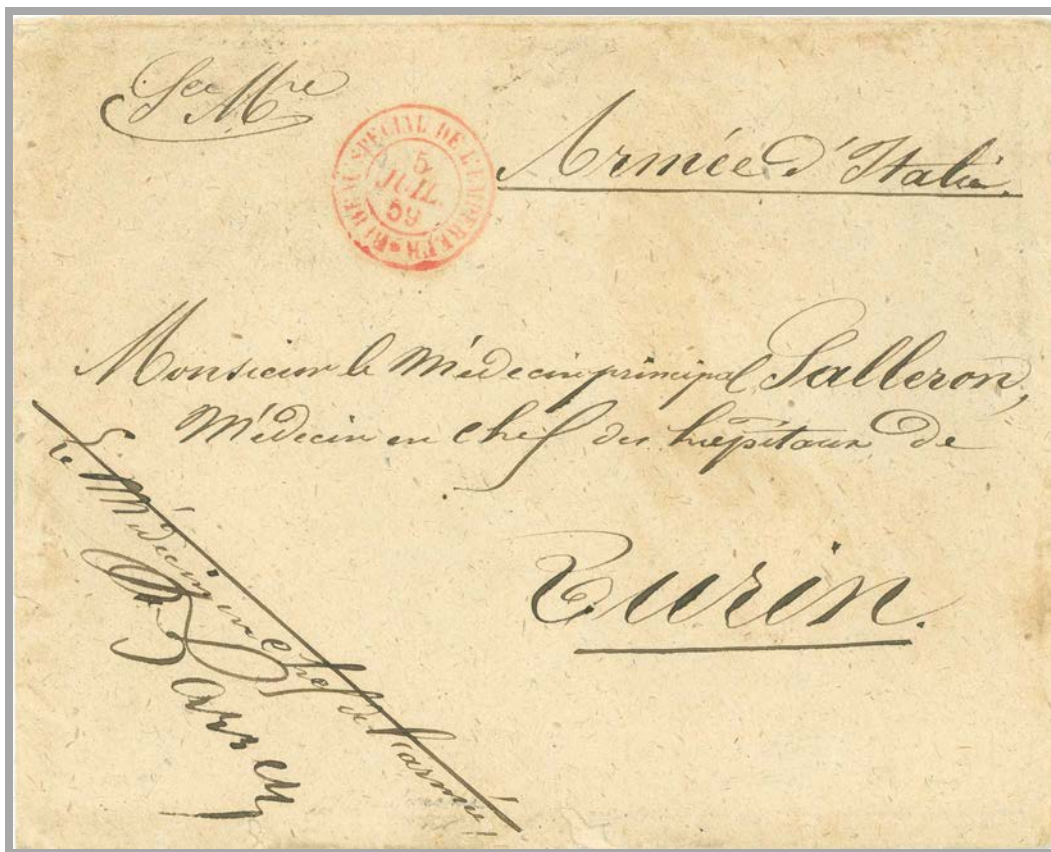 Sce Mre
BUREAU SPECIAL DE L'EMPEREUR
5
JUIL.
59
Armée d'Italie.
Monsieur le Médecin principal Salleron,
Médecin en chef des hôpitaux de
Turin.
Le Médecin en chef de l'armée
Larrey